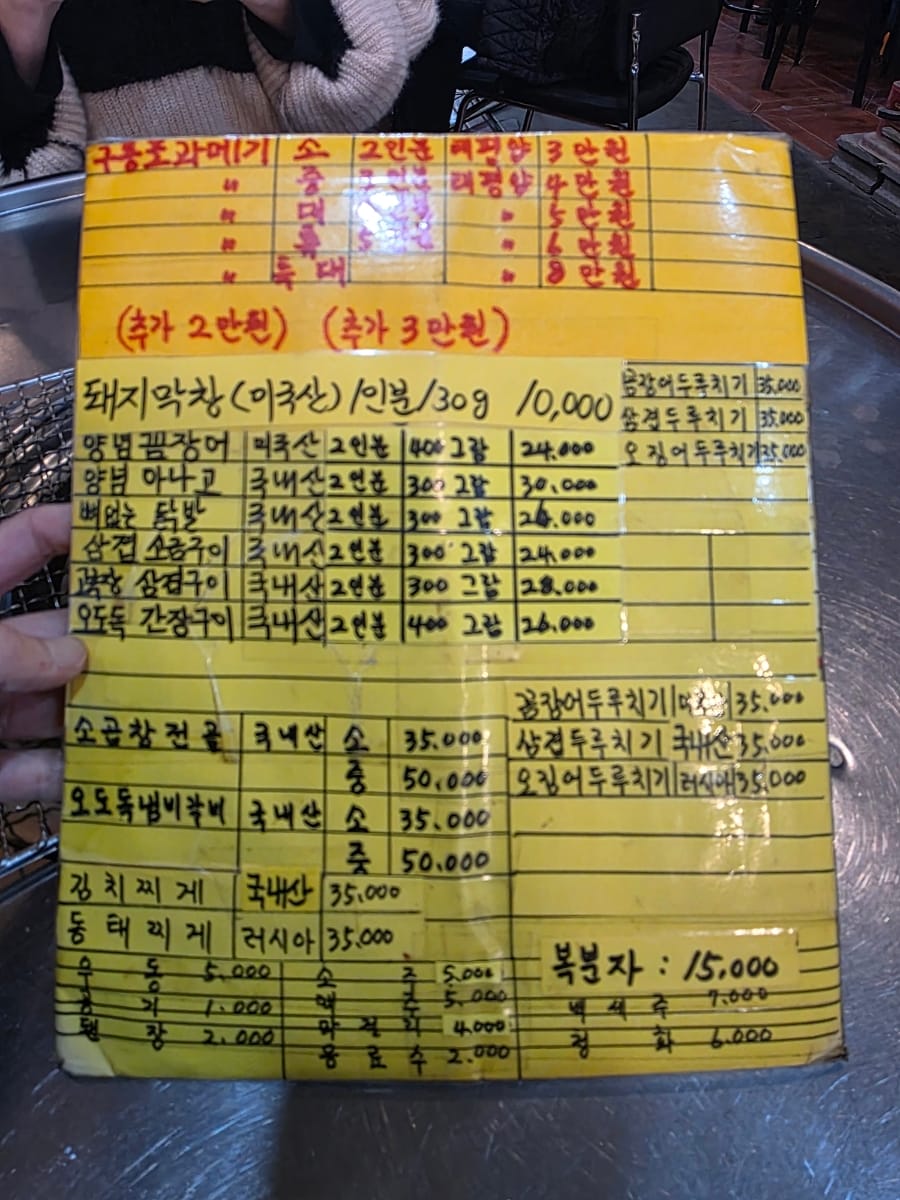 구룡포과메기 소 2인분 태평양 3만원
〃 중 3인분 태평양 4만원
〃 대 인분 〃 5만원
〃 특 5인분 〃 6만원
〃 특대 〃 8만원
(추가 2만원) (추가 3만원)
돼지막창(미국산) 1인분 130g 10,000
곰장어두루치기 35.000
삼겹두루치기 35.000
오징어두루치기 35.000
양념꼼장어 미국산 2인분 400그람 24.000
양념 아나고 국내산 2인분 300그람 30.000
뼈없는 닭발 국내산 2인분 300그람 24.000
삼겹 소금구이 국내산 2인분 300그람 24.000
고추장 삼겹구이 국내산 2인분 300그람 28.000
오도독 간장구이 국내산 2인분 400그람 26.000
곰장어두루치기 미국산 35.000
삼겹두루치기 국내산 35.000
오징어두루치기 러시아 35.000
소곱창전골 국내산 소 35.000
중 50.000
오도독냄비갈비 국내산 소 35.000
중 50.000
김치찌게 국내산 35.000
동태찌게 러시아 35.000
우동 5.000
공기 1.000
된장 2.000
소주 5.000
맥주 5.000
막걸리 4.000
음료수 2.000
복분자 : 15,000
백세주 7.000
청하 6.000